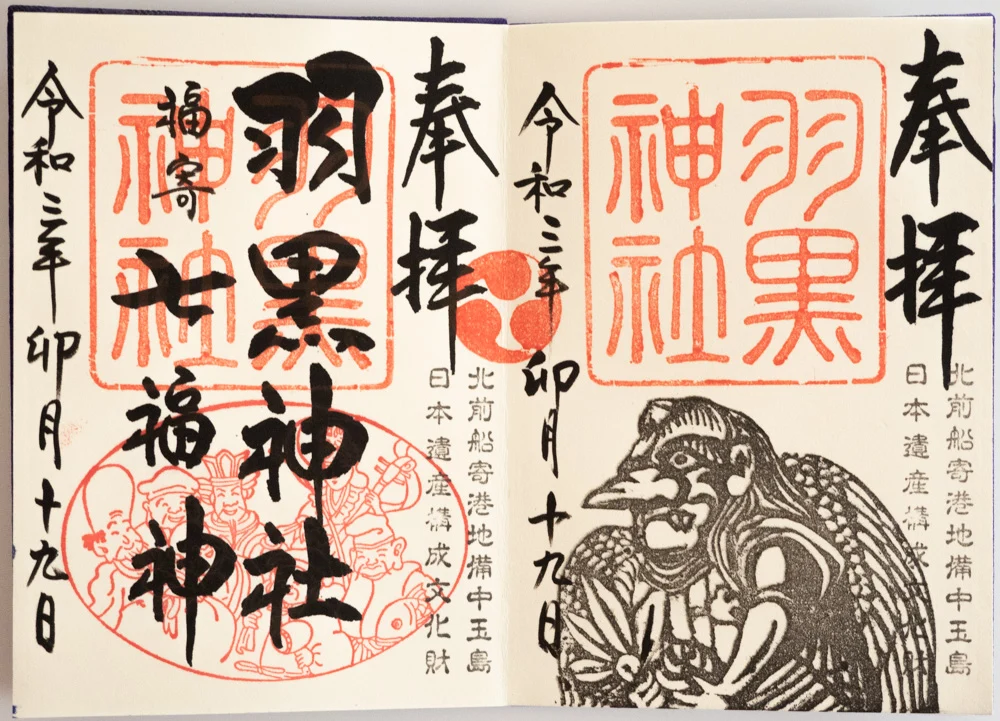 奉拝
北前船寄港地備中玉島
日本遺産構成文化財
羽黒
神社
令和三年卯月十九日
奉拝
北前船寄港地備中玉島
日本遺産構成文化財
羽黒神社
福寄
七福神
羽黒
神社
令和三年卯月十九日